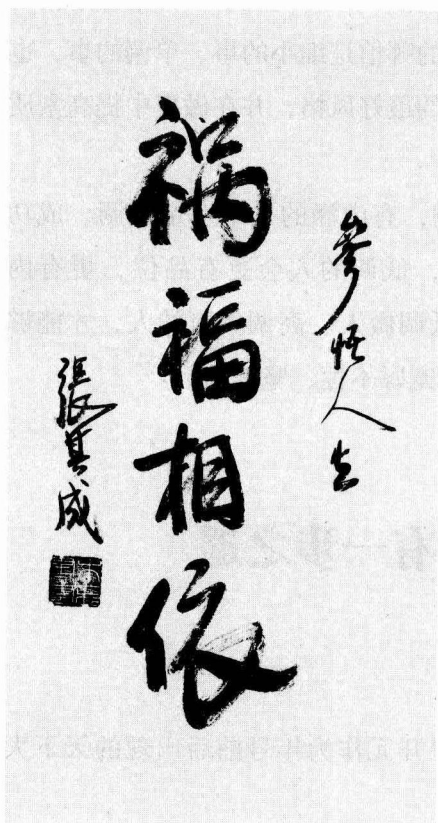 參悟人生
祸福相依
張其成